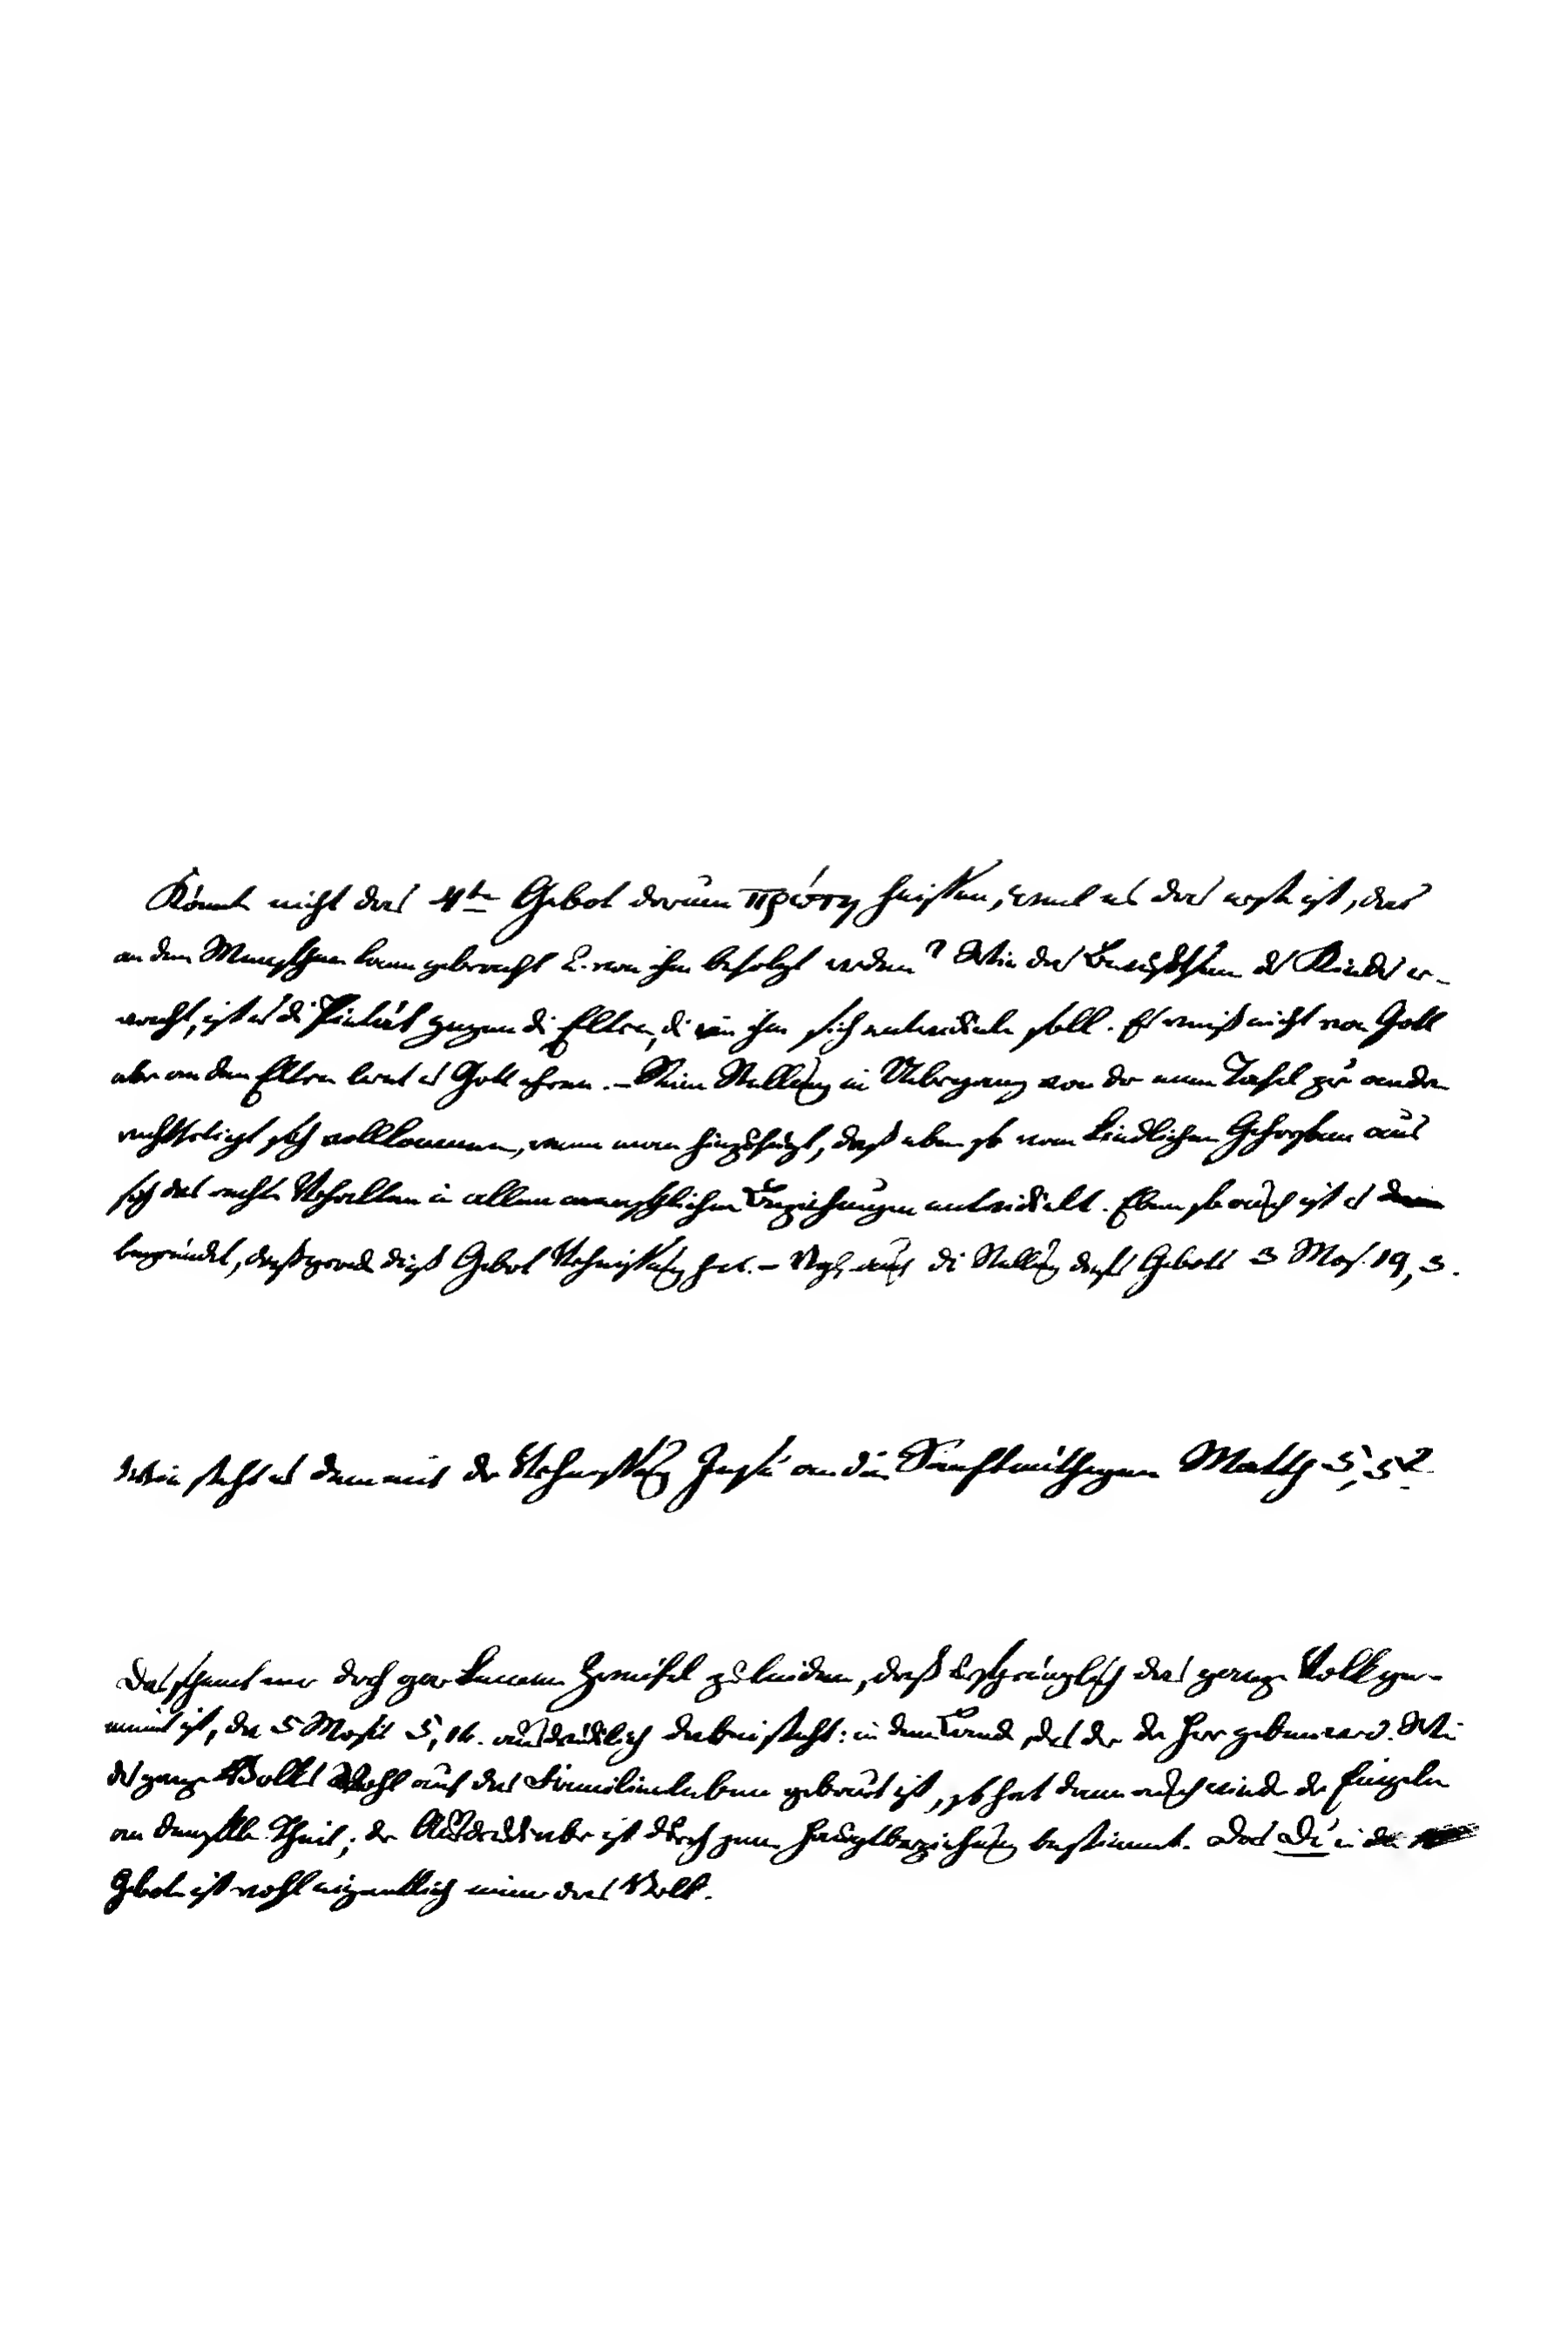 Könnte nicht das 4te Gebot darum πρώτη heißen, weil es das erste ist, das
an den Menschen kann gebracht u. von ihm befolgt werden? Wie das Bewußtsein des Kindes er-
wacht, ist es die Pietät gegen die Eltern, die in ihm sich entwickeln soll. Es weiß nicht von Gott
aber an den Eltern lernt es Gott ehren. – Seine Stellung im Uebergang von der einen Tafel zur andern
rechtfertigt sich vollkommen, wenn man hinzufügt, daß eben so vom kindlichen Gehorsam aus
sich das rechte Verhalten in allen menschlichen Beziehungen entwickelt. Eben so auch ist es
begründet, daß gerade dieß Gebot Verheißung hat. – Vgl. auch die Stellung dieses Gebots 3 Mos. 19, 3.
Wie steht es denn mit der Verheißung Jesu an die Sanftmüthigen Matth 5, 5?
Das scheint mir doch gar keinen Zweifel zu leiden, daß ursprünglich das ganze Volk ge-
meint ist, da 5 Mosis 5, 16. ausdrücklich dabei steht: in dem Lande, das dir der Herr geben wird. Wie
des ganzen Volks Wohl auf das Familienleben gebaut ist, so hat dann auch wieder der Einzelne
an demselben Theil; der Ausdruck aber ist durch jene Hauptbeziehung bestimmt. Das Du in den
Geboten ist wohl eigentlich immer das Volk.